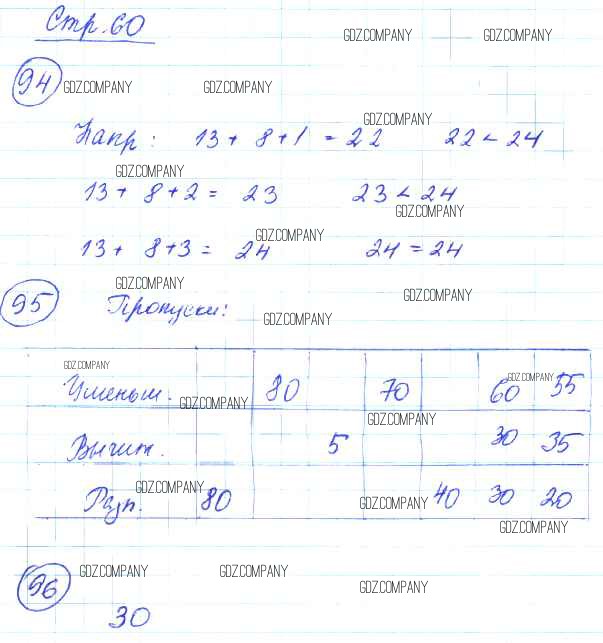 Стр. 60
GDZ.COMPANY GDZ.COMPANY
94 GDZ.COMPANY GDZ.COMPANY
GDZ.COMPANY
Напр: 13 + 8 + 1 = 22 22 < 24
GDZ.COMPANY
13 + 8 + 2 = 23 23 < 24
GDZ.COMPANY
GDZ.COMPANY
13 + 8 + 3 = 24 24 = 24
GDZ.COMPANY GDZ.COMPANY
95 Пропуски:
GDZ.COMPANY
GDZ.COMPANY GDZ.COMPANY
Уменьш. 80 70 60 55
GDZ.COMPANY
GDZ.COMPANY
Вычит. 5 30 35
GDZ.COMPANY
Разн. 80 40 30 20
GDZ.COMPANY
GDZ.COMPANY
GDZ.COMPANY GDZ.COMPANY
96 GDZ.COMPANY
30